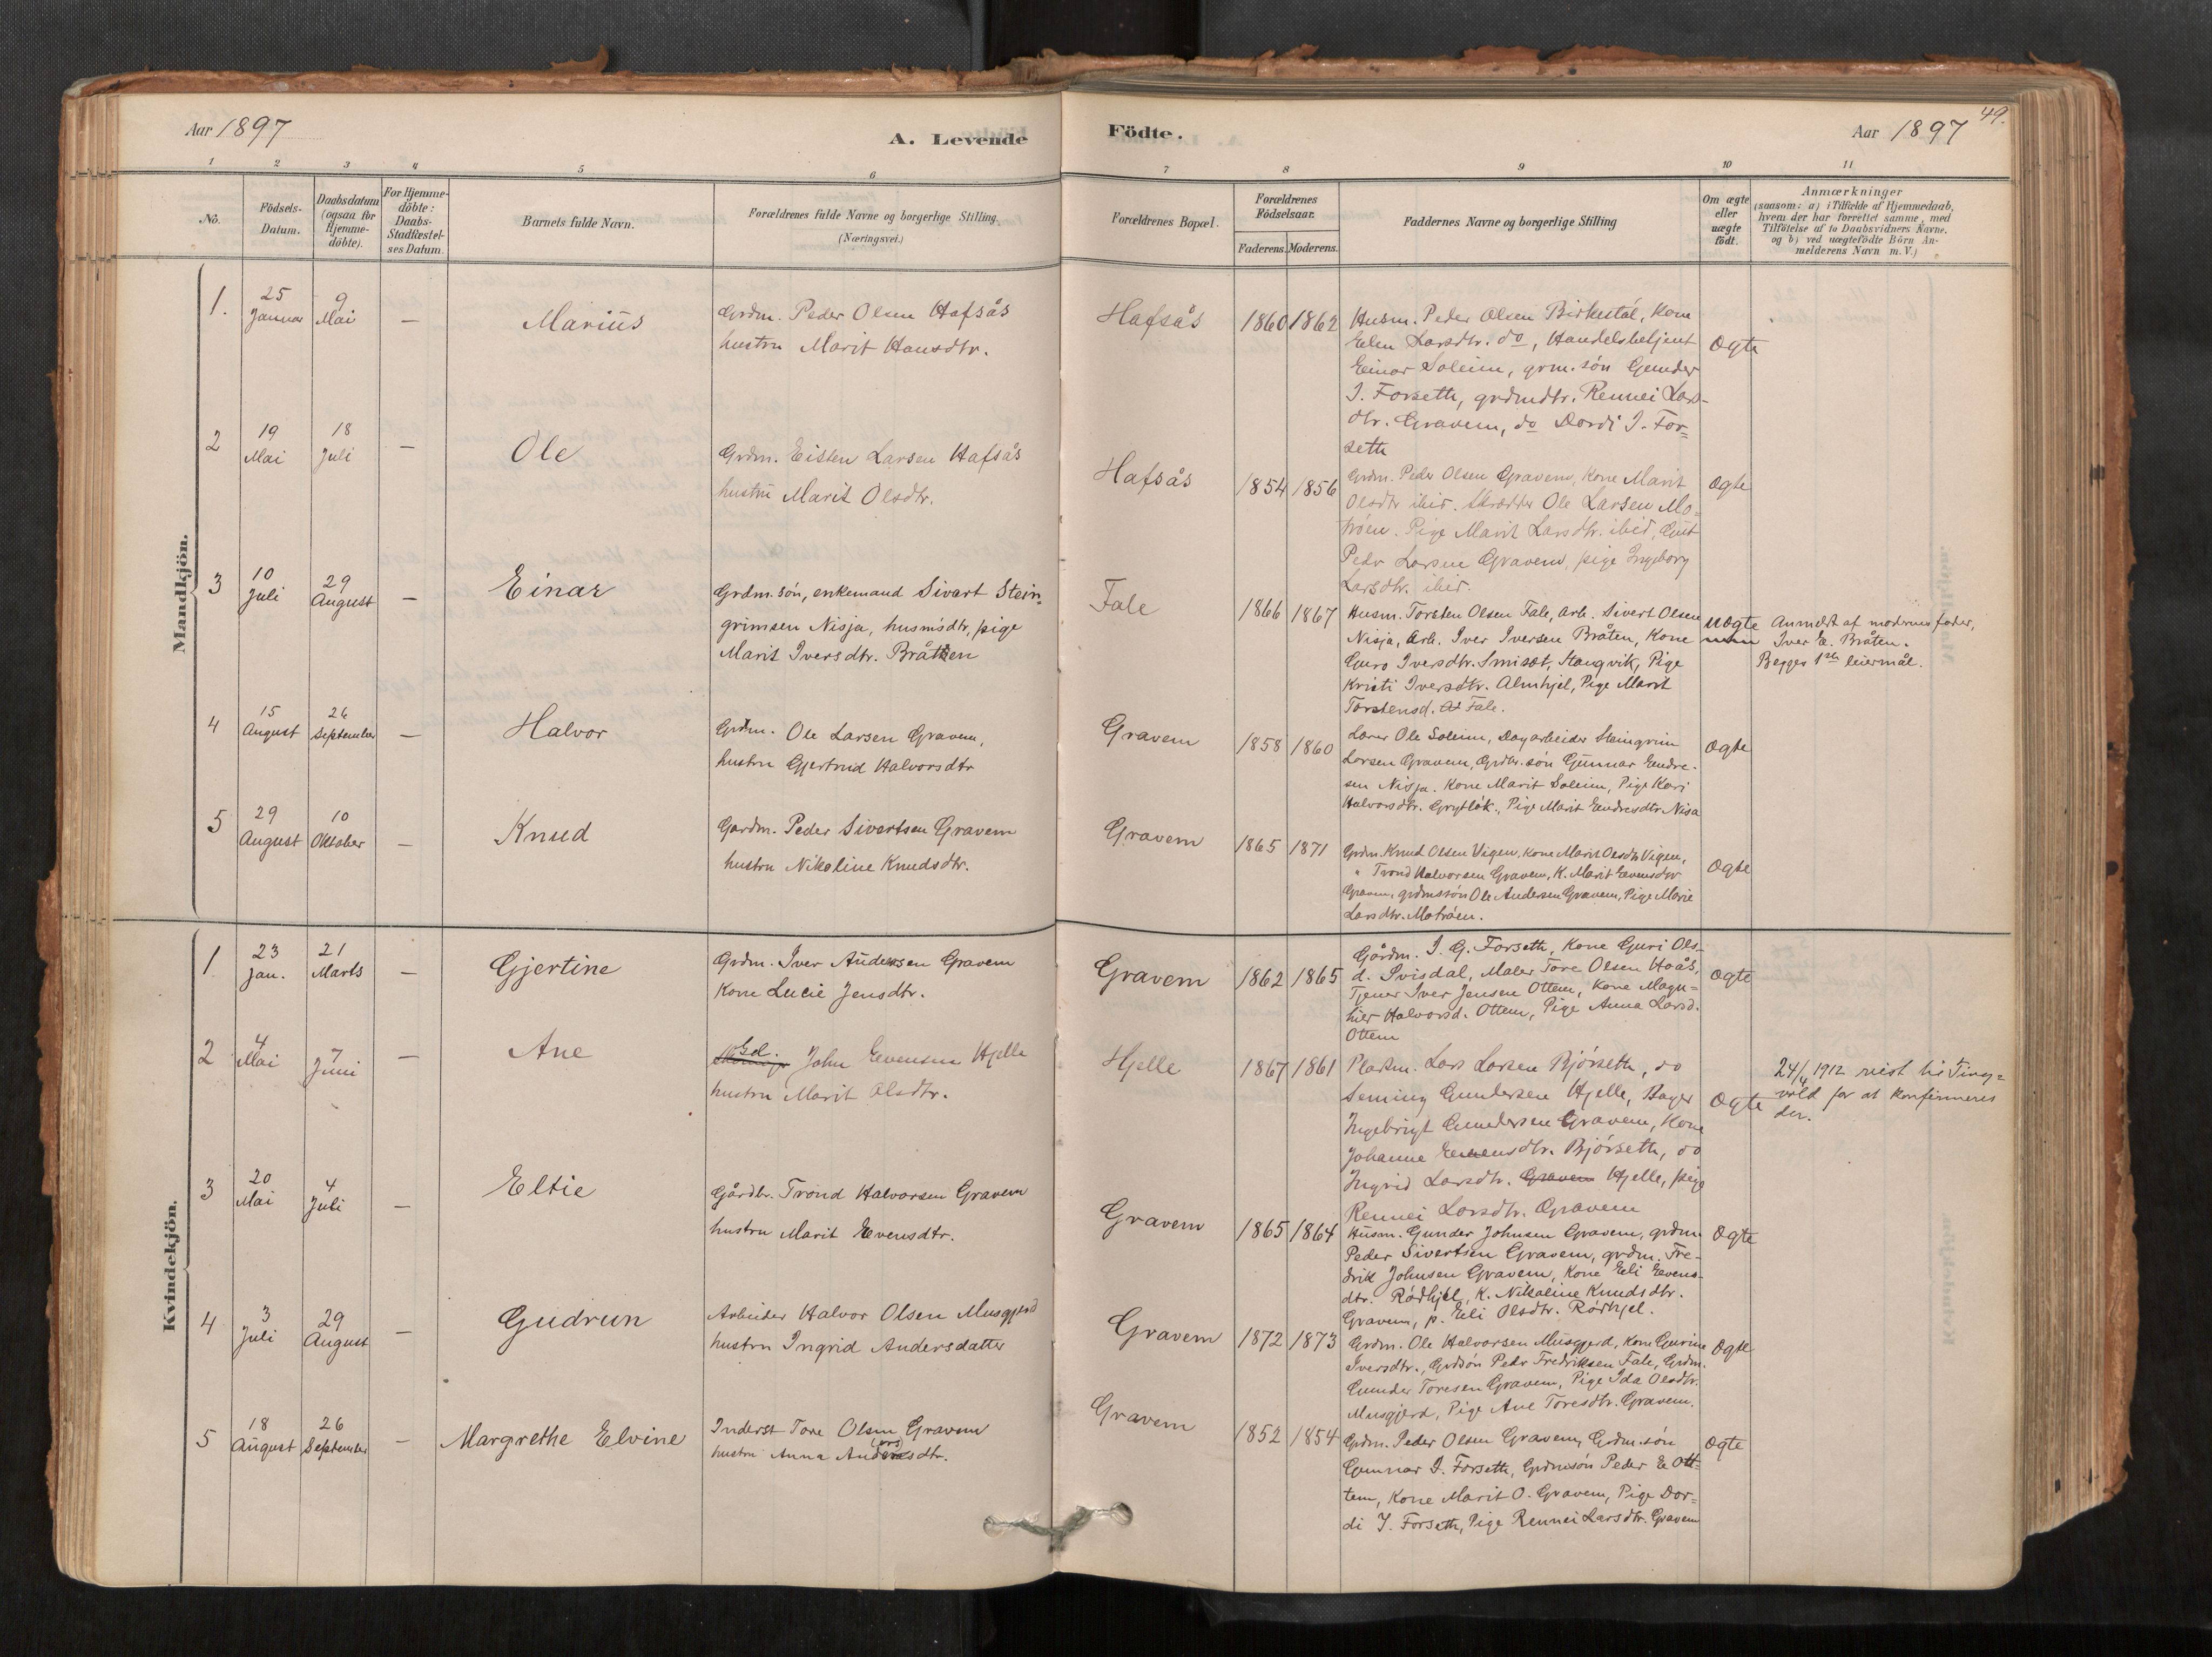 Aar 1897
A. Levende
Födte.
Aar 1897
49.
1 2 3 4 5 6 7 8 9 10 11
No.
Födsels-
Datum.
Daabsdatum
(ogsaa for
Hjemme-
döbte).
For Hjemme-
döbte:
Daabs-
Stadfæstel-
ses Datum.
Barnets fulde Navn.
Forældrenes fulde Navne og borgerlige Stilling.
(Næringsvei.)
Forældrenes Bopæl.
Forældrenes
Födselsaar.
Faderens. Moderens.
Faddernes Navne og borgerlige Stilling
Om ægte
eller
uægte
födt.
Anmærkninger
(saasom: a) i Tilfælde af Hjemmedaab,
hvem der har forrettet samme, med
Tilföielse af to Daabsvidners Navne.
og b) ved uægtefödte Börn An-
melderens Navn m.V.)
Mandkjön.
1.
25
Januar
9
Mai
—
Marius
Grdm. Peder Olsen Hafsås
hustru Marit Hansdtr.
Hafsås
1860 1862
Husm. Peder Olsen Birkestöl, Kone
Eelen Larsdtr. do, Handelsbetjent
Einar Soleim, grm. sön Gunder
I. Forseth, grdmdtr. Rennei Lars-
dtr. Gravem, do Dordi I. For=
seth
Ægte
2
19
Mai
18
Juli
—
Ole
Grdm. Eisten Larsen Hafsås
hustru Marit Olsdtr.
Hafsås
1854 1856
Grdm. Peder Olsen Gravem, Kone Marit
Olsdtr ibid. Skrædder Ole Larsen Mo=
tröen. Pige Marit Larsdtr. ibid, Gut
Pedr Larsen Gravem, pige Ingeborg
Larsdtr. ibid.
Ægte
3
10
Juli
29
August
—
Einar
Grdm. sön, enkemand Sivart Stein=
grimsen Nisja, husm'sdtr, pige
Marit Iversdtr. Bråtten
Fale
1866 1867
Husm. Torsten Olsen Fale, Arb. Sivert Olsen
Nisja, Arb. Iver Iversen Bråten, Kone
Guro Iversdtr. Smiset, Stangvik, Pige
Kristi Iversdtr. Almhjel, Pige Marit
Torstensd. Fale.
Uægte
Anmeldt af moderens fader,
Iver E. Bråten.
Begges 1ste leiermål.
4
15
August
26
September
—
Halvor
Grdm. Ole Larsen Gravem,
hustru Gjertrud Halvorsdtr
Gravem
1858 1860
Lærer Ole Soleim, Dagarbeider Steingrim
Larsen Gravem, Grdbr. sön Gunnar Eendre-
sen Nisja. Kone Marit Soleim, Pige Kari
Halvorsdtr. Grytlök., Pige Marit Eendresdtr. Nisa
Ægte
5
29
August
10
Oktober
—
Knud
Gardm. Peder Sivertsen Gravem
hustru Nikoline Knudsdtr.
Gravem
1865 1871
Grdm. Knud Olsen Vigen, Kone Marit Olsdtr Vigen,
" Trond Halvorsen Gravem, K. Marit Eevensdtr
Gravem, grdmssön Ole Andersen Gravem, Pige Marie
Larsdtr. Motröen.
Ægte
Kvindekjön.
1
23
Jan.
21
Marts
—
Gjertine
Grdm. Iver Andersen Gravem
Kone Lucie Jensdtr.
Gravem
1862 1865
Gårdm. I. G. Forseth, Kone Guri Ols-
d. Svisdal, Maler Tore Olsen Hoås,
Tjener Iver Jensen Ottem, Kone Magn=
hier Halvorsd. Ottem, Pige Anna Larsd.
Ottem
Ægte
2
4
Mai
7
Juni
—
Ane
Gd. John Eevensen Hjelle
hustru Marit Olsdtr.
Hjelle
1867 1861
Pladsm. Lars Larsen Bjørseth, do
Seming Gundersen Hjelle, Bager
Ingebrigt Gundersen Gravem, Kone
Johanne Eevensdtr. Bjørseth, do
Ingrid Larsdtr. Gravem Hjelle, pige
Rennei Larsdtr. Gravem
Ægte
24/4 1912 reist til Ting=
vold for at konfirmeres
der.
3
20
Mai
4
Juli
—
Eltie
Gårdbr. Trond Halvorsen Gravem
hustru Marit Evensdtr.
Gravem
1865 1864
Husm. Gunder Johnsen Gravem, grdm
Peder Sivertsen Gravem, grdm. Fre-
drik Johnsen Gravem, Kone Eeli Eevens-
dtr. Rödhjel, K. Nikoline Knudsdtr.
Gravem, p. Eeli Olsdtr. Rödhjel.
Ægte
4
3
Juli
29
August
—
Gudrun
Arbeider Halvor Olsen Musgjerd
hustru Ingrid Andersdatter
Gravem
1872 1873
Grdm. Ole Halvorsen Musgjerd, Kone Gurine
Iversdtr., Grdsön Pedr Fredriksen Fale, Grdm.
Gunder Toresen Gravem, Pige Ida Olsdtr.
Musgjerd, Pige Ane Toresdtr. Gravem.
Ægte
5
18
August
26
September
—
Margrethe Elvine
Inderst Tore Olsen Gravem
hustru Anna Andersdtr.
Gravem
1852 1854
Grdm. Peder Olsen Gravem, Grdm. sön
Gunnar I. Forseth, Grdmsön Peder E Ott=
tem, Kone Marit O. Gravem, Pige Dor=
di I. Forseth, Pige Rennei Larsdtr. Gravem
Ægte